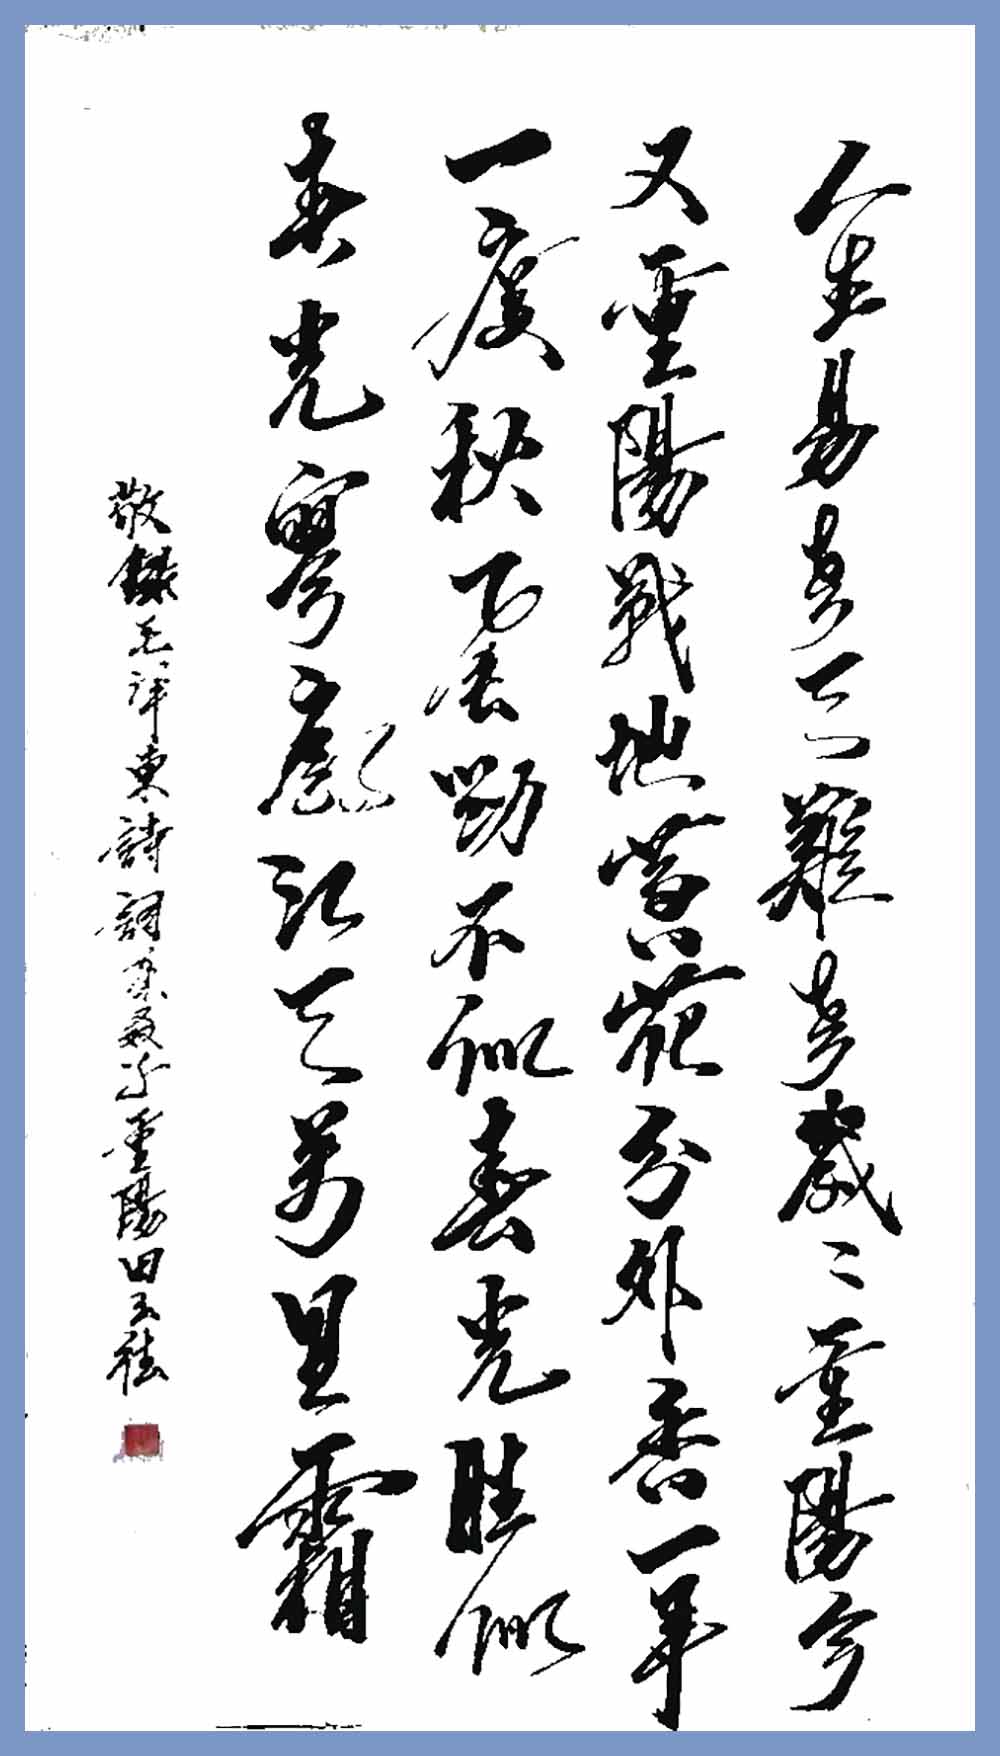 人生易老天難老歲々重陽今
又重陽戰地黃花分外香一年
一度秋風勁不似春光胜似
春光寥廓江天萬里霜
敬錄毛澤東詩詞采桑子重陽田玉